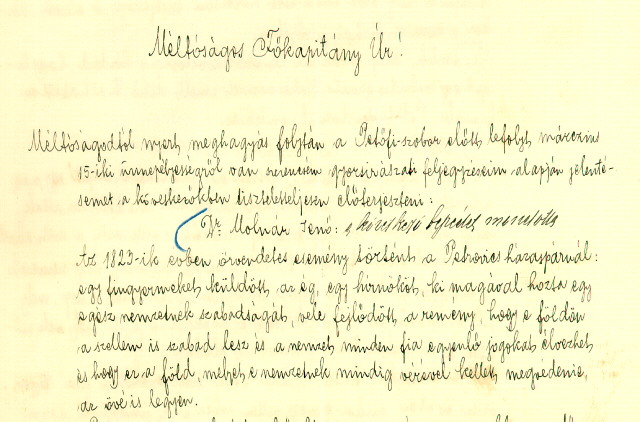 Méltóságos Főkapitány Úr!
Méltóságodtól nyert meghagyás folytán a Petőfi-szobor előtt lefolyt márczius
15-iki ünnepélyességről van szerencsém gyorsirászati feljegyzéseim alapján jelenté-
semet a következőkben tiszteletteljesen előterjeszteni:
Dr. Molnár Jenő: a következő beszédet mondotta
Az 1823-ik évben örvendetes esemény történt a Petrovics házaspárnál:
egy fiugyermeket küldött az ég, egy hirnököt, ki magával hozta egy
egész nemzetnek szabadságát, vele fejlődött a remény, hogy e földön
a szellem is szabad lesz és a nemzet minden fia egyenlő jogokat élvezhet
és hogy ez a föld, melyet e nemzetnek mindig vérével kellett megvédenie,
az övé is legyen.